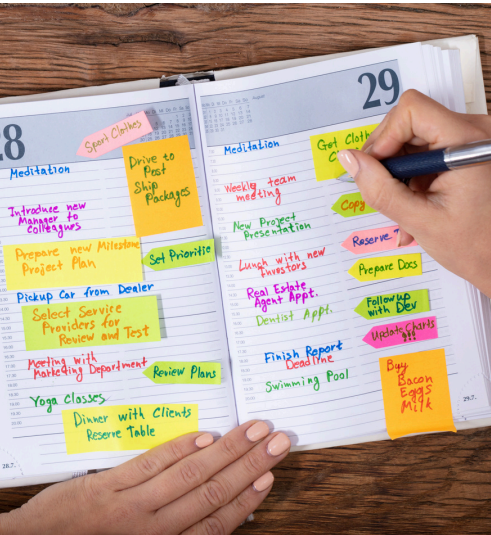 28
Sport Clothes
Meditation
Drive to
Post
Ship
Packages
Introduce new
Manager to
Colleagues
Prepare new Milestone
Project Plan
Set Prioritie
Pickup Car from Dealer
Select Service
Providers for
Review and Test
Meeting with
Marketing Department
Review Plans
Yoga Classes
Dinner with Clients
Reserve Table
28.7.
August
29
Meditation
Get Cloth
Weekly team
meeting
Copy
New Project
Presentation
Reserve
Lunch with new
Investors
Prepare Docs
Real Estate
Agent Appt.
Followup
with Dev
Dentist Appt.
Update Charts
Finish Report
Deadline
Buy
Bacon
Eggs
Milk
Swimming Pool
29.7.